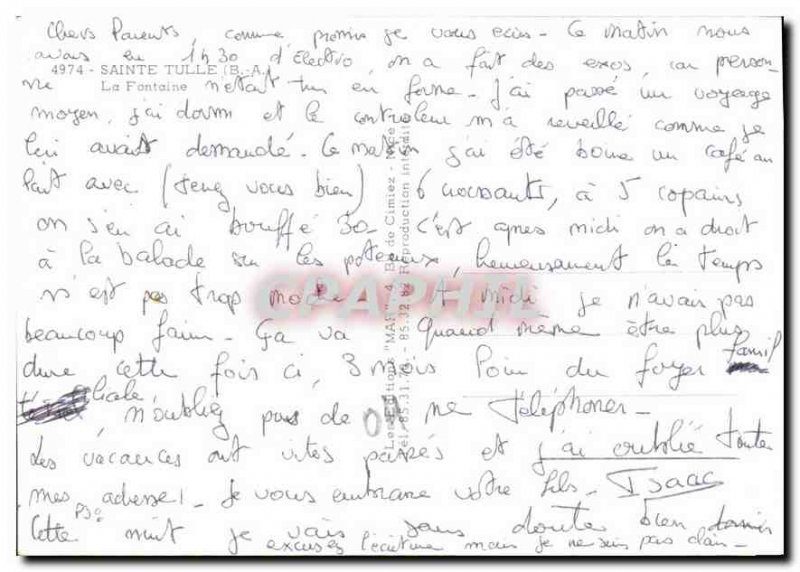 Chers Parents, comme promis je vous ecris - Ce matin nous
avons eu 1h30 d'électro, on a fait des exos, car person-
4974 - SAINTE TULLE (B.-A.)
La Fontaine
ne n'était en forme - j'ai passé un voyage
moyen, j'ai dormi et le controleur m'a reveillé comme je
lui avait demandé. Ce matin j'ai été boire un café au
lait avec (tenez vous bien) 6 croissants, à 5 copains
on s'en ai bouffé 30 - c'est apres midi on a droit
à la balade sur les poteaux, heureusement le temps
n'est pas trop moche - A midi je n'avais pas
beaucoup faim - Ça va quand même être plus
dure cette fois ci, 3 mois loin du foyer famil
liale, n'oubliez pas de me téléphoner -
Les vacances ont vites passés et j'ai oublié toutes
mes adresse! - Je vous embrasse votre fils - Isaac
PS:
Cette nuit je vais sans doute bien dormir
excusez l'écriture mais je ne suis pas clair -
Les Editions "MAR" - 4, Bd de Cimiez - Nice
Tél. 85.31.76 - 85.32.82 Reproduction interdite
CPAPHIL